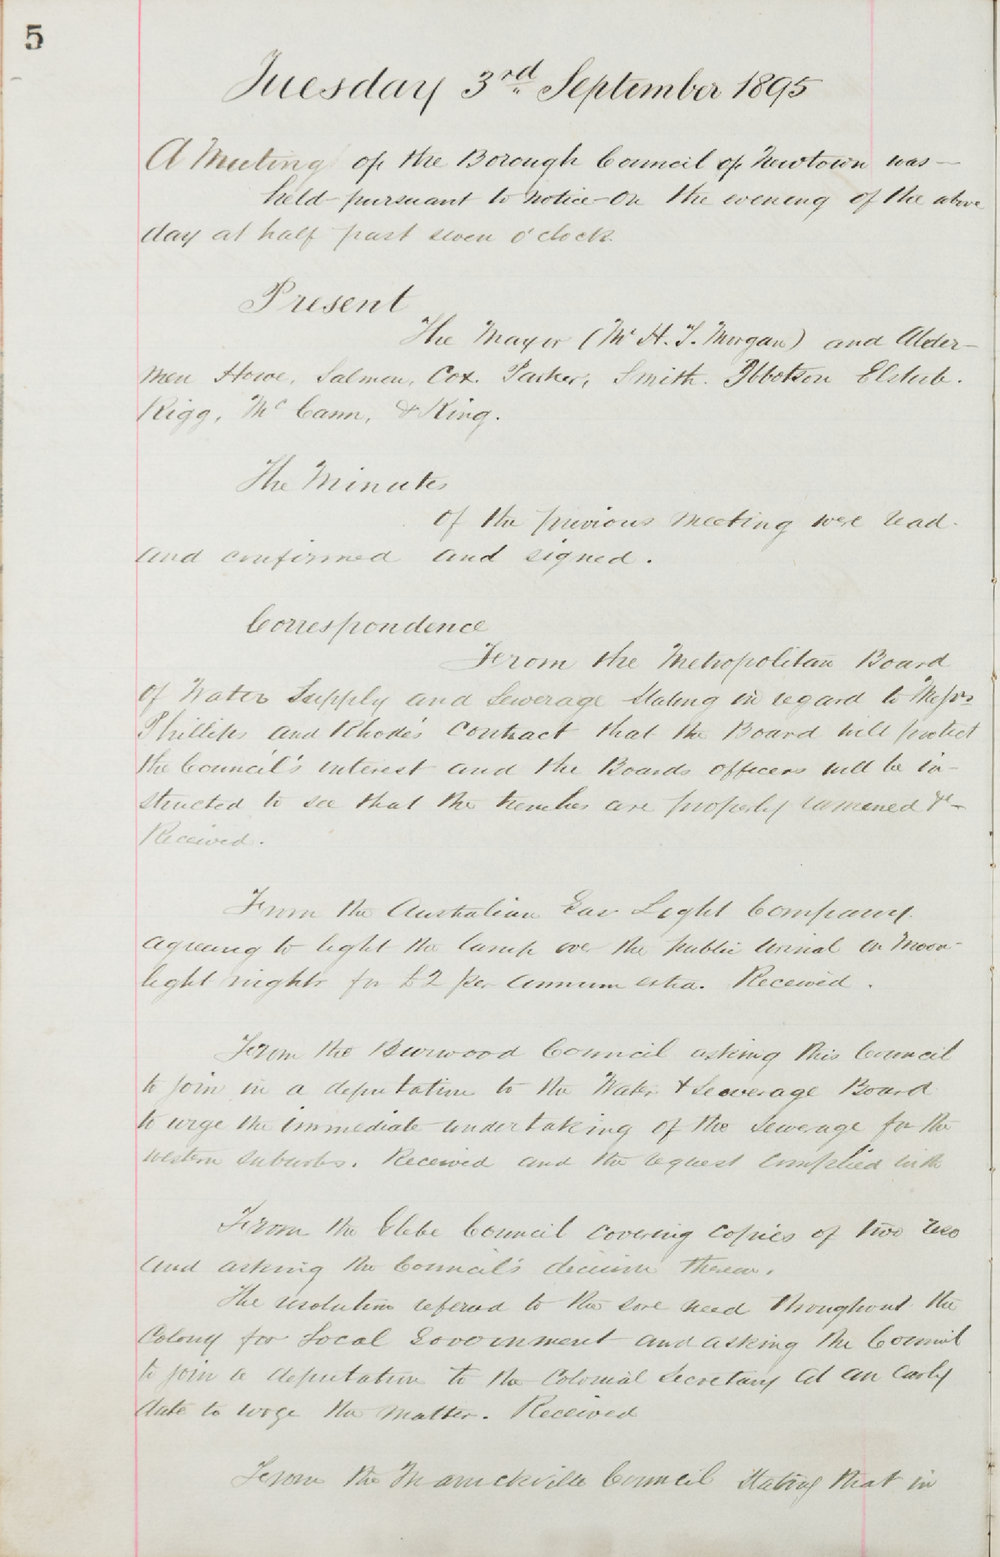 5
Tuesday 3rd September 1895
A Meeting of the Borough Council of Newtown was
held pursuant to notice on the evening of the above
day at half past seven o'clock.
Present
The Mayor (Mr H. T. Morgan) and Alder-
men Howe, Salmon, Cox. Parker, Smith. Ibbotson Elsteb.
Rigg, Mc Cann, & King.
The Minutes
of the previous meeting were read
and confirmed and signed.
Correspondence
From the Metropolitan Board
of Water Supply and Sewerage stating in regard to Messrs
Phillips and Rhodes contract that the Board will protect
the Council's interest and the Boards officers will be in-
structed to see that the trenches are properly rammed &c
Received.
From the Australian Gas Light Company
agreeing to light the lamp over the public urinal on moon-
light nights for £2 per annum extra. Received.
From the Burwood Council asking this Council
to join in a deputation to the Water & Sewerage Board
to urge the immediate undertaking of the sewerage for the
western suburbs. Received and the request complied with
From the Glebe Council covering copies of two reso
and asking the Council's decision thereon.
The resolution referred to the sore need throughout the
Colony for Local Government and asking the Council
to join a deputation to the Colonial Secretary at an early
date to urge the matter. Received
From the Marrickville Council stating that in